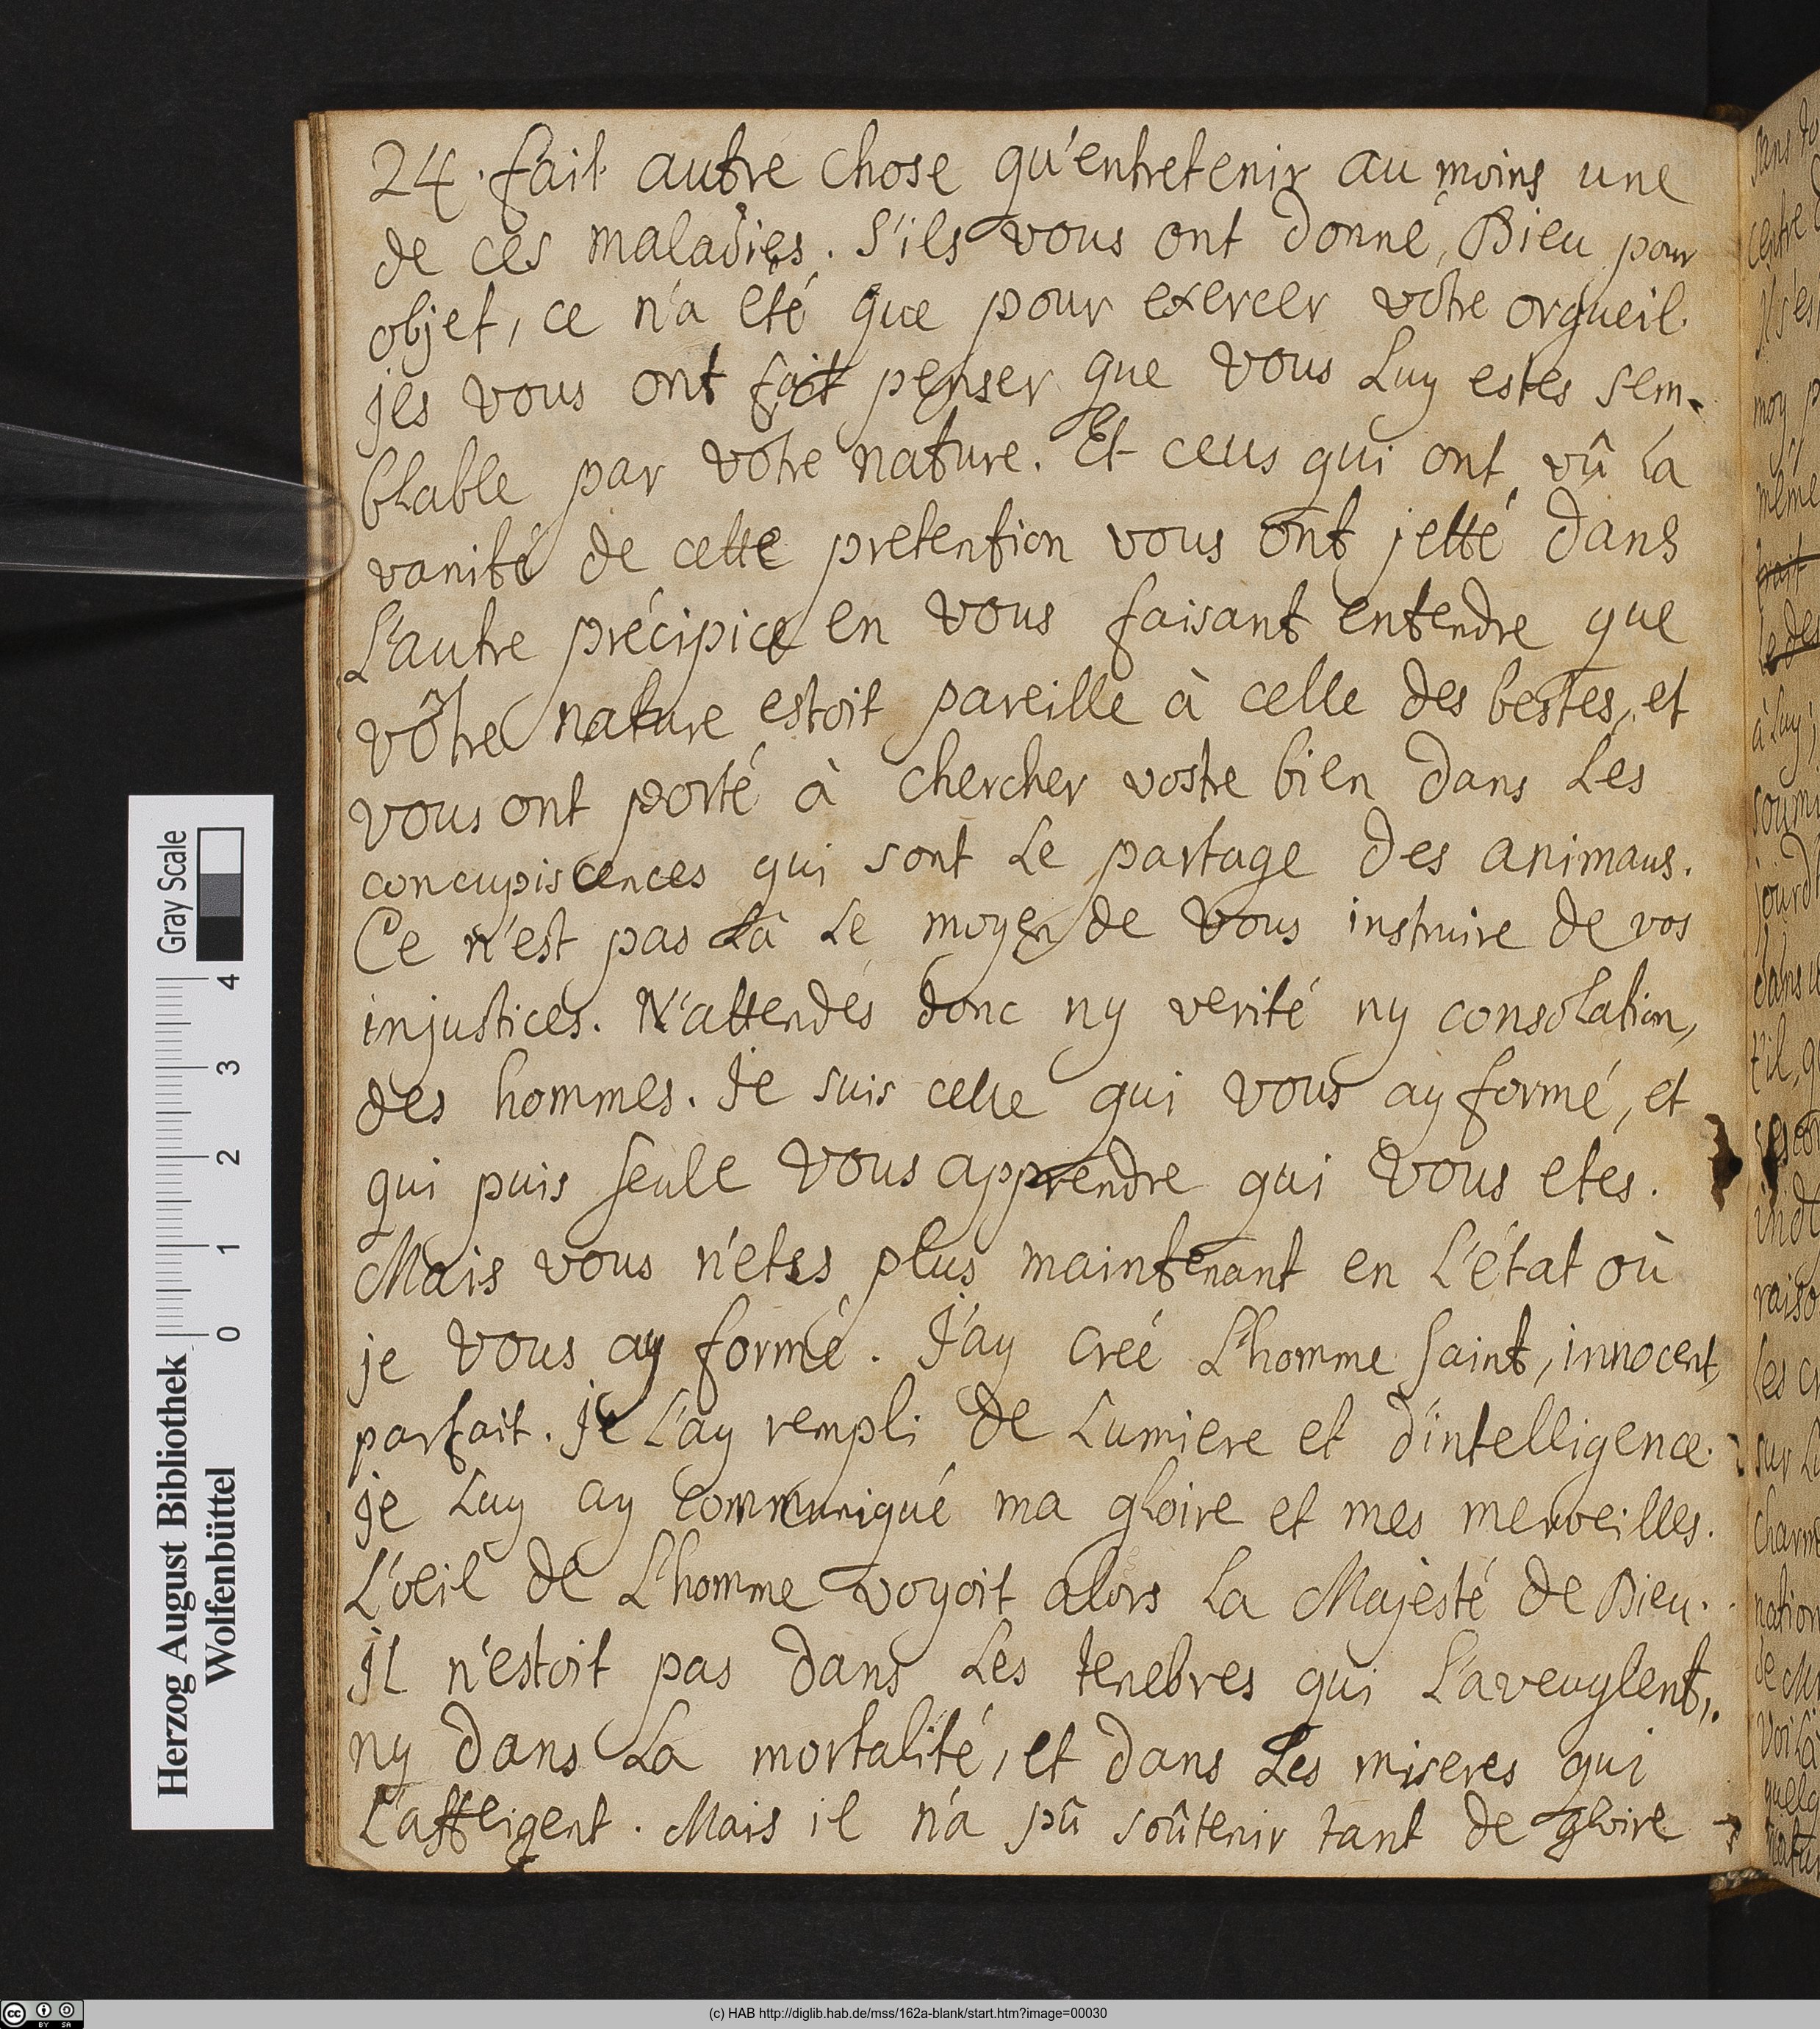 24. fait autre chose qu'entretenir au moins une
de ces maladies. S'ils vous ont donné, Dieu pour
objet, ce n'a eté que pour exercer vôtre orgueil.
jls vous ont fait penser que vous Luy estes sem-
blable par vôtre nature. Et ceus qui ont vû La
vanité de cette pretention vous ont jetté dans
L'autre précipice en vous faisant entendre que
vôtre nature estoit pareille à celle des bestes, et
vous ont porté à chercher vostre bien dans Les
concupiscences qui sont Le partage des animaus.
Ce n'est pas Là Le moyen de vous instruire de vos
injustices. N'attendés donc ny verité ny consolation,
des hommes. Je suis celle qui vous ay formé, et
qui puis seule vous apprendre qui vous etes.
Mais vous n'etes plus maintenant en L'état où
je vous ay formé. J'ay creé L'homme saint, innocent,
parfait. Je L'ay rempli de Lumiere et d'intelligence.
je Luy ay communiqué ma gloire et mes merveilles.
L'oeil de L'homme voyoit alors La Majesté de Dieu.
jL n'estoit pas dans Les tenebres qui L'aveuglent,
ny dans La mortalité, et dans Les miseres qui
L'affligent. Mais il n'a pû soûtenir tant de gloire
Gray Scale
4 3 2 1 0
Herzog August Bibliothek
Wolfenbüttel
(c) HAB http://diglib.hab.de/mss/162a-blank/start.htm?image=00030